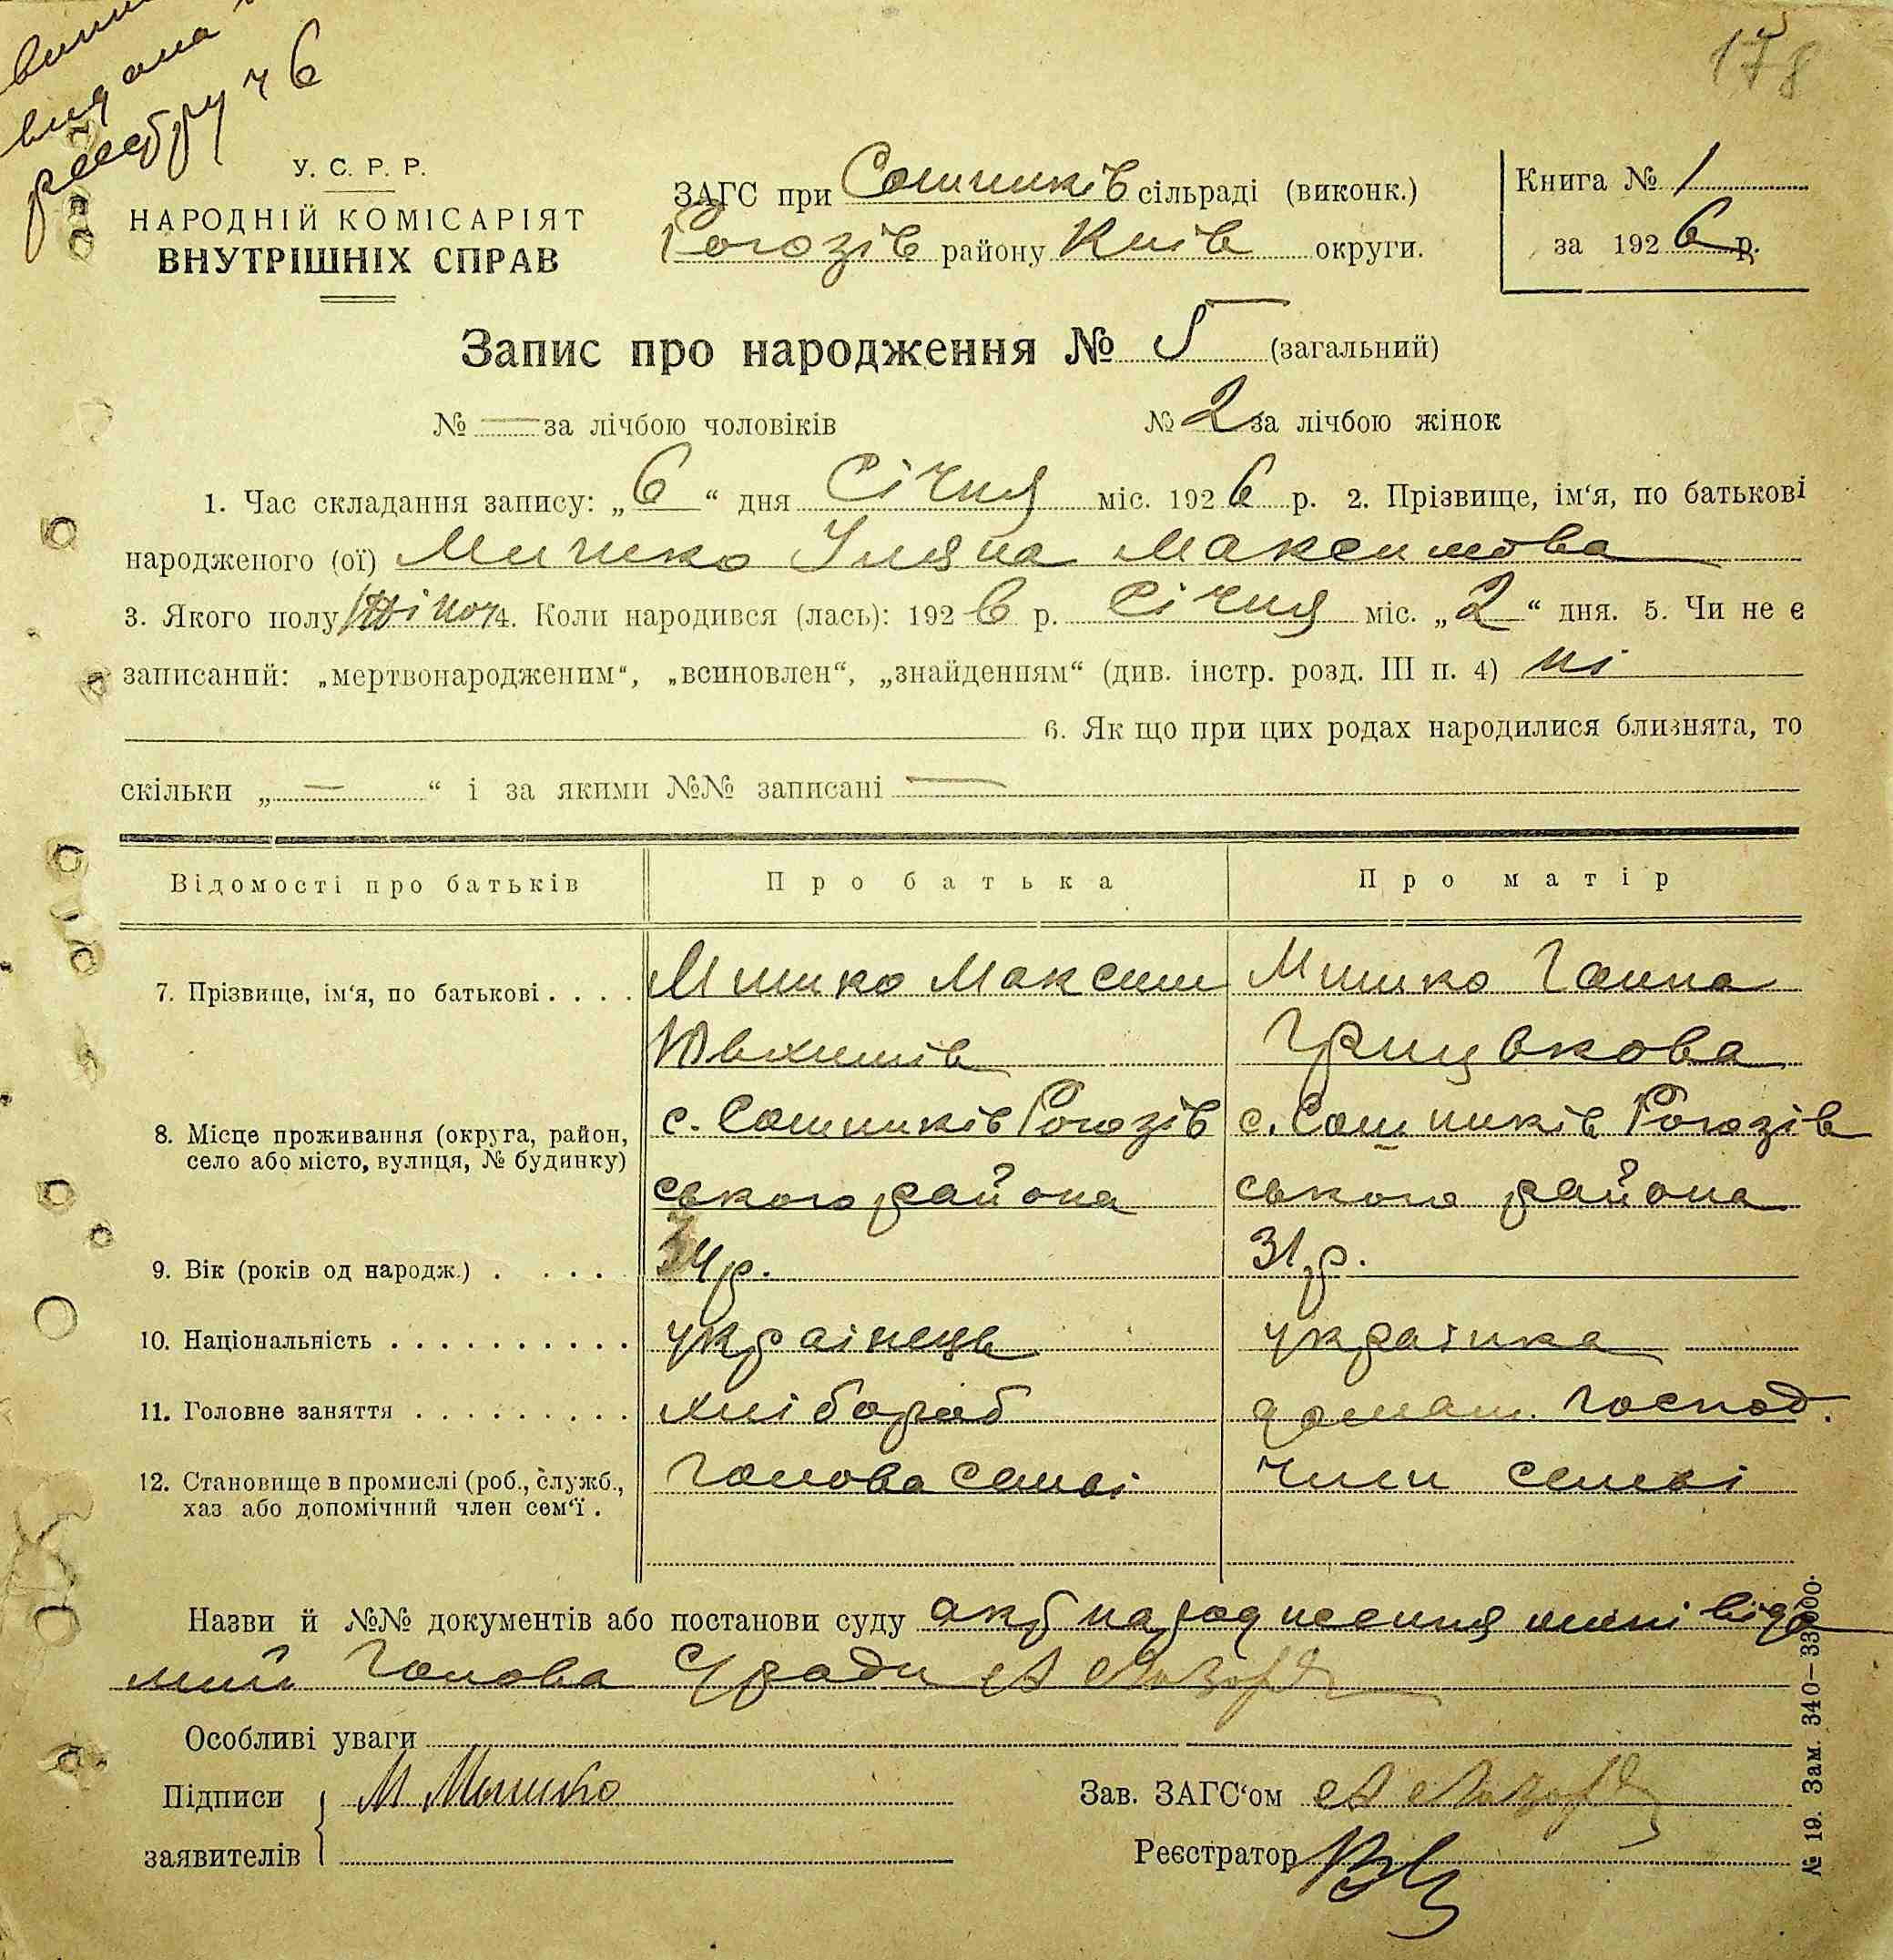 видана
реєстру ч 6
178
У. С. Р. Р.
НАРОДНІЙ КОМІСАРІЯТ
ВНУТРІШНІХ СПРАВ
ЗАГС при Сошників сільраді (виконк.)
Рогозів району Київ округи.
Книга № 1
за 1926 р.
Запис про народження № 5 (загальний)
№ — за лічбою чоловіків № 2 за лічбою жінок
1. Час складання запису: „6“ дня Січня міс. 1926 р. 2. Прізвище, ім‘я, по батькові
народженого (ої) Мишко Уляна Максимова
3. Якого полу жіноч 4. Коли народився (лась): 1926 р. Січня міс. „2“ дня. 5. Чи не є
записаний: „мертвонародженим“, „всиновлен“, „знайденням“ (див. інстр. розд. III п. 4) ні
6. Як що при цих родах народилися близнята, то
скільки „ — “ і за якими №№ записані —
Відомості про батьків Про батька Про матір
7. Прізвище, ім‘я, по батькові . . . . Мишко Максим Мишко Ганна
Юхимів Грицькова
8. Місце проживання (округа, район, с. Сошників Рогозів с. Сошників Рогозів
село або місто, вулиця, № будинку)
ського района ського района
9. Вік (років од народж.) . . . . 34 р. 31 р.
10. Національність . . . . . . . . . . українець українка
11. Головне заняття . . . . . . . . . хлібороб домаш. господ.
12. Становище в промислі (роб., служб., Голова семьі член семьі
хаз або допомічний член сем‘ї .
Назви й №№ документів або постанови суду акт народження мені відо
мий Голова С/ради А
Особливі уваги
Підписи М Мишко Зав. ЗАГС‘ом А
заявителів Реєстратор
№ 19. Зам. 340—33000.